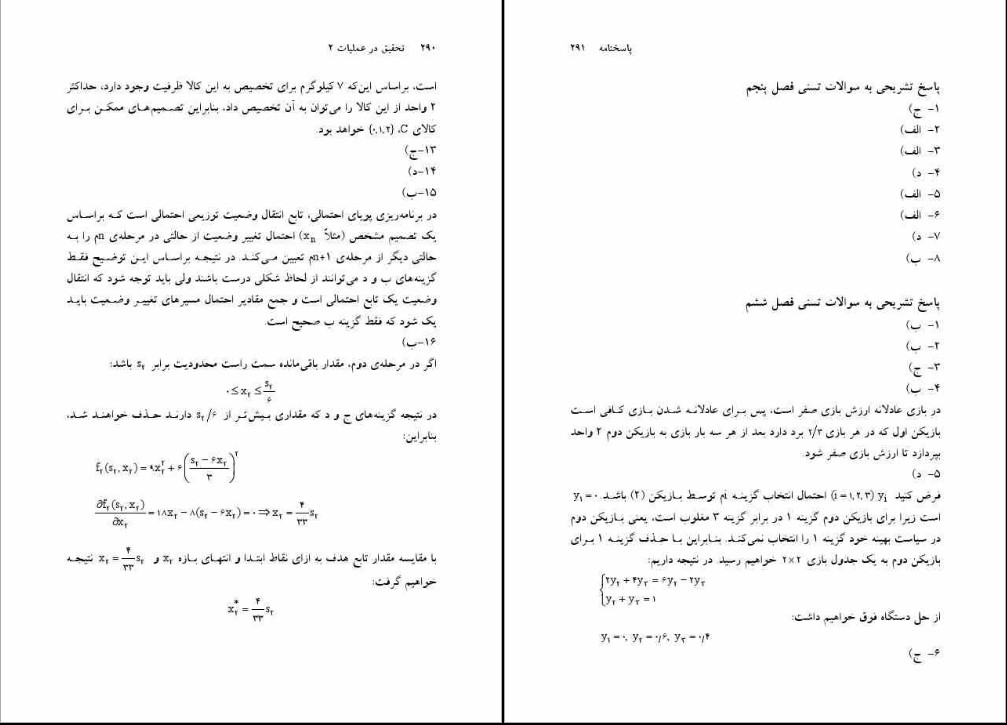 ۲۹۰ تحقیق در عملیات ۲
است، براساس این‌که ۷ کیلوگرم برای تخصیص به این کالا ظرفیت وجود دارد، حداکثر
۲ واحد از این کالا را می‌توان به آن تخصیص داد، بنابراین تصمیم‌های ممکن برای
کالای C، {۰,۱,۲} خواهد بود.
۱۳-ج)
۱۴-د)
۱۵-ب)
در برنامه‌ریزی پویای احتمالی، تابع انتقال وضعیت توزیعی احتمالی است که براساس
یک تصمیم مشخص (مثلاً xₙ) احتمال تغییر وضعیت از حالتی در مرحله‌ی nم را به
حالتی دیگر از مرحله‌ی n+۱م تعیین می‌کند. در نتیجه براساس این توضیح فقط
گزینه‌های ب و د می‌توانند از لحاظ شکلی درست باشند ولی باید توجه شود که انتقال
وضعیت یک تابع احتمالی است و جمع مقادیر احتمال مسیرهای تغییر وضعیت باید
یک شود که فقط گزینه ب صحیح است.
۱۶-ب)
اگر در مرحله‌ی دوم، مقدار باقی‌مانده سمت راست محدودیت برابر s₂ باشد:
۰ ≤ x₂ ≤ s₂/۶
در نتیجه گزینه‌های ج و د که مقداری بیش‌تر از s₂/۶ دارند حذف خواهند شد،
بنابراین:
f₂(s₂, x₂) = ۹x₂² + ۶((s₂ − ۶x₂)/۳)²
∂f₂(s₂, x₂)/∂x₂ = ۱۸x₂ − ۸(s₂ − ۶x₂) = ۰ ⇒ x₂ = ۴/۳۳ s₂
با مقایسه مقدار تابع هدف به ازای نقاط ابتدا و انتهای بازه x₂ و x₂ = ۴/۳۳ s₂ نتیجه
خواهیم گرفت:
x₂* = ۴/۳۳ s₂
پاسخنامه ۲۹۱
پاسخ تشریحی به سوالات تستی فصل پنجم
۱- ج)
۲- الف)
۳- الف)
۴- د)
۵- الف)
۶- الف)
۷- د)
۸- ب)
پاسخ تشریحی به سوالات تستی فصل ششم
۱- ب)
۲- ب)
۳- ج)
۴- ب)
در بازی عادلانه ارزش بازی صفر است، پس برای عادلانه شدن بازی کافی است
بازیکن اول که در هر بازی ۲/۳ برد دارد بعد از هر سه بار بازی به بازیکن دوم ۲ واحد
بپردازد تا ارزش بازی صفر شود.
۵- د)
فرض کنید yᵢ (i = ۱,۲,۳) احتمال انتخاب گزینه iم توسط بازیکن (۲) باشد. y₁ = ۰
است زیرا برای بازیکن دوم گزینه ۱ در برابر گزینه ۳ مغلوب است، یعنی بازیکن دوم
در سیاست بهینه خود گزینه ۱ را انتخاب نمی‌کند. بنابراین با حذف گزینه ۱ برای
بازیکن دوم به یک جدول بازی ۲×۲ خواهیم رسید. در نتیجه داریم:
{۲y₂ + ۴y₃ = ۶y₂ − ۲y₃
y₂ + y₃ = ۱
از حل دستگاه فوق خواهیم داشت:
y₁ = ۰, y₂ = ۰/۶, y₃ = ۰/۴
۶- ج)